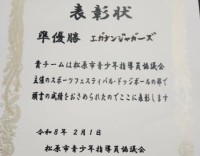 表彰状
準優勝 エガテンジャガーズ
貴チームは松原市青少年指導員協議会
主催のスポーツフェスティバル・ドッジボールの部で
頭書の成績をおさめられたのでここに表彰します
令和8年 2月1日
松原市青少年指導員協議会